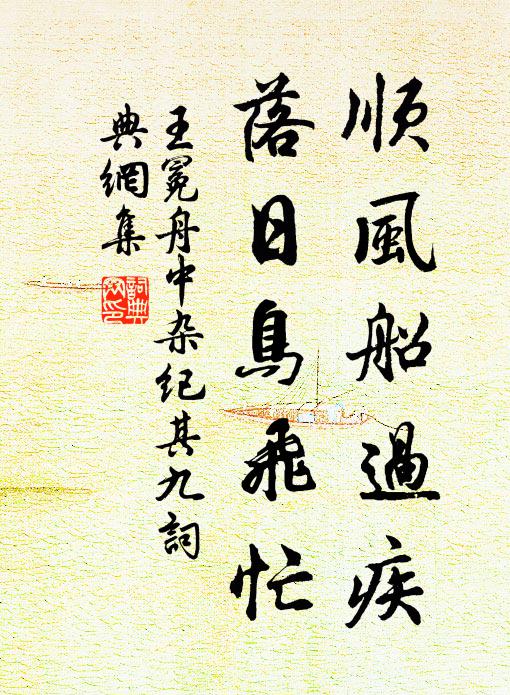 順風船過疾
落日鳥飛忙
王冕舟中杂纪其九詞
典網集
詞典網印